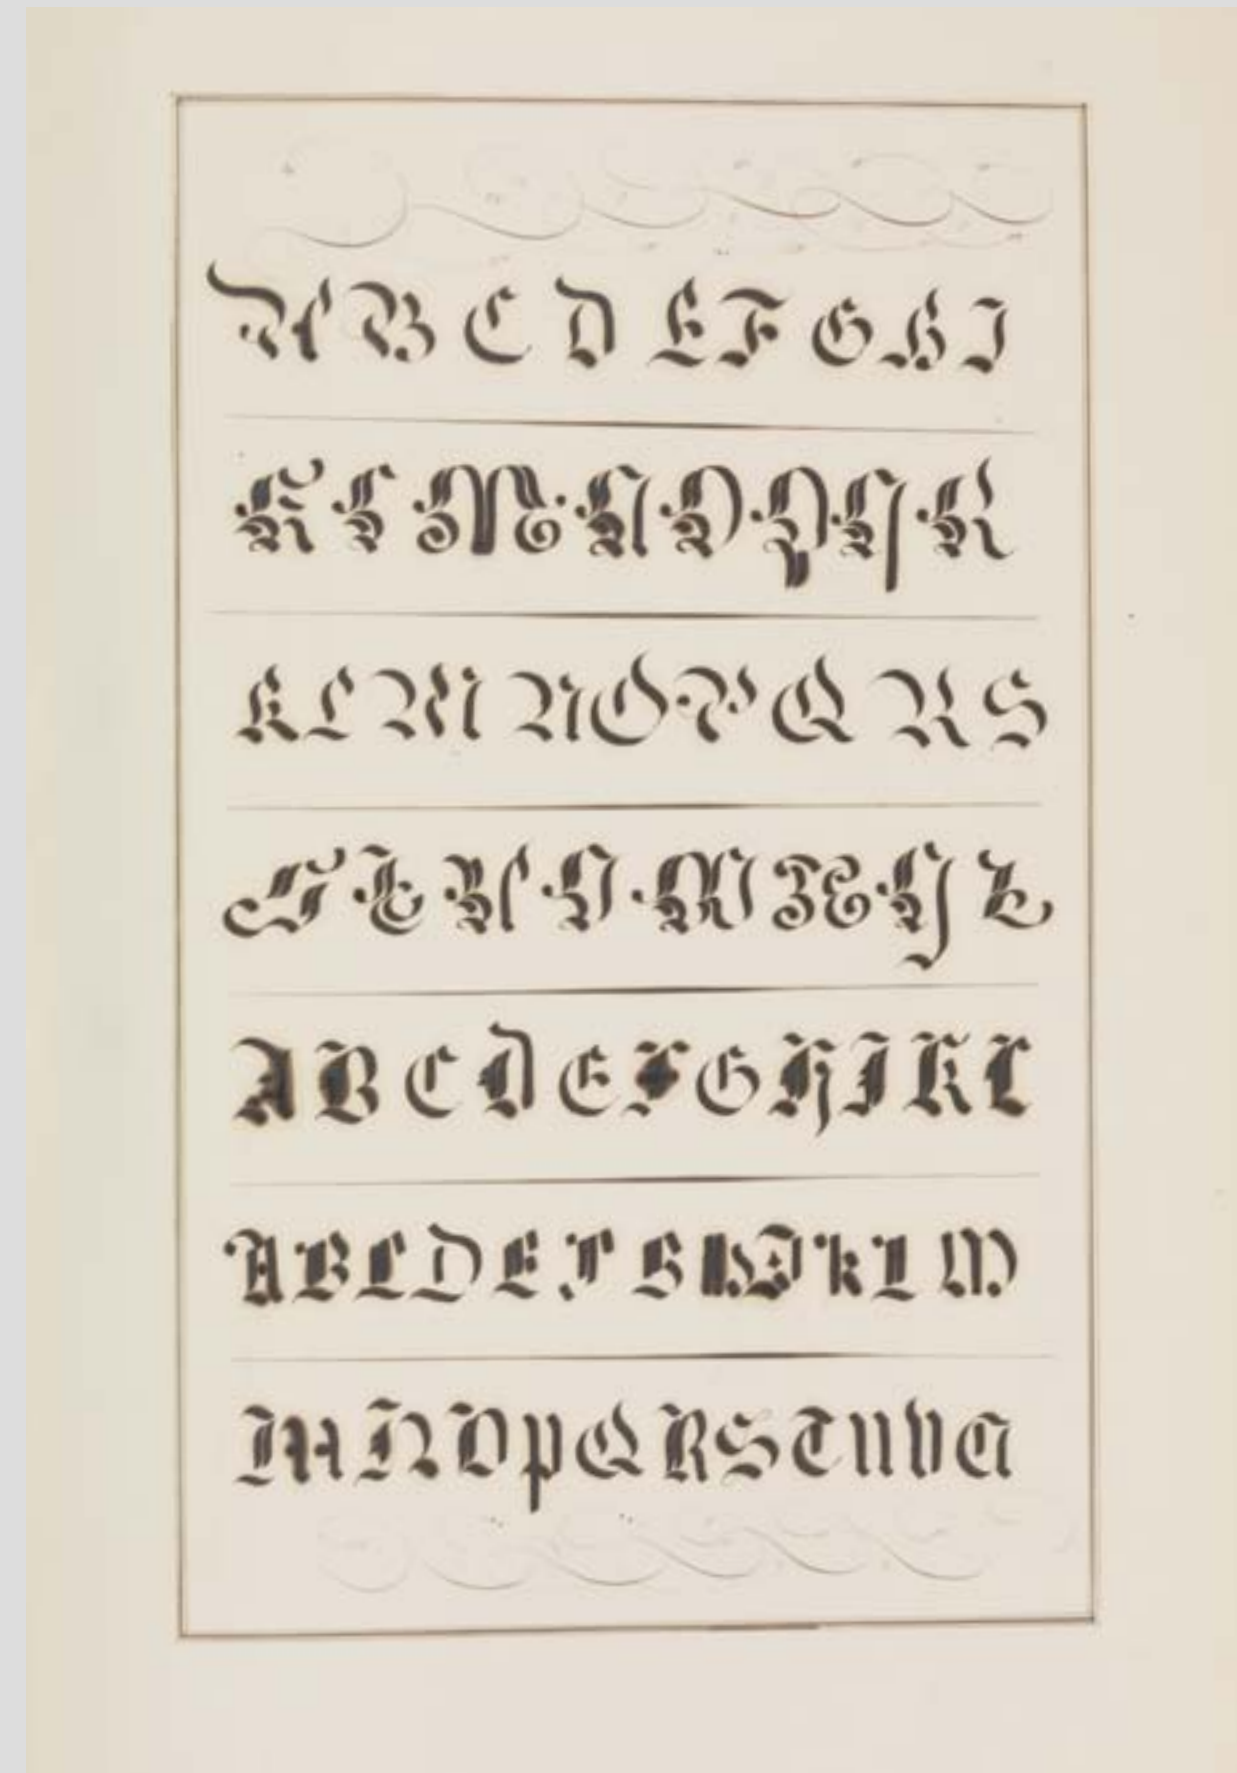 A B C D E F G H I
K L M N O P Q R
K L M N O P Q R S
S T U V W X Y Z
A B C D E F G H I K L
A B C D E F G H I K L M
M N O P Q R S T U V A